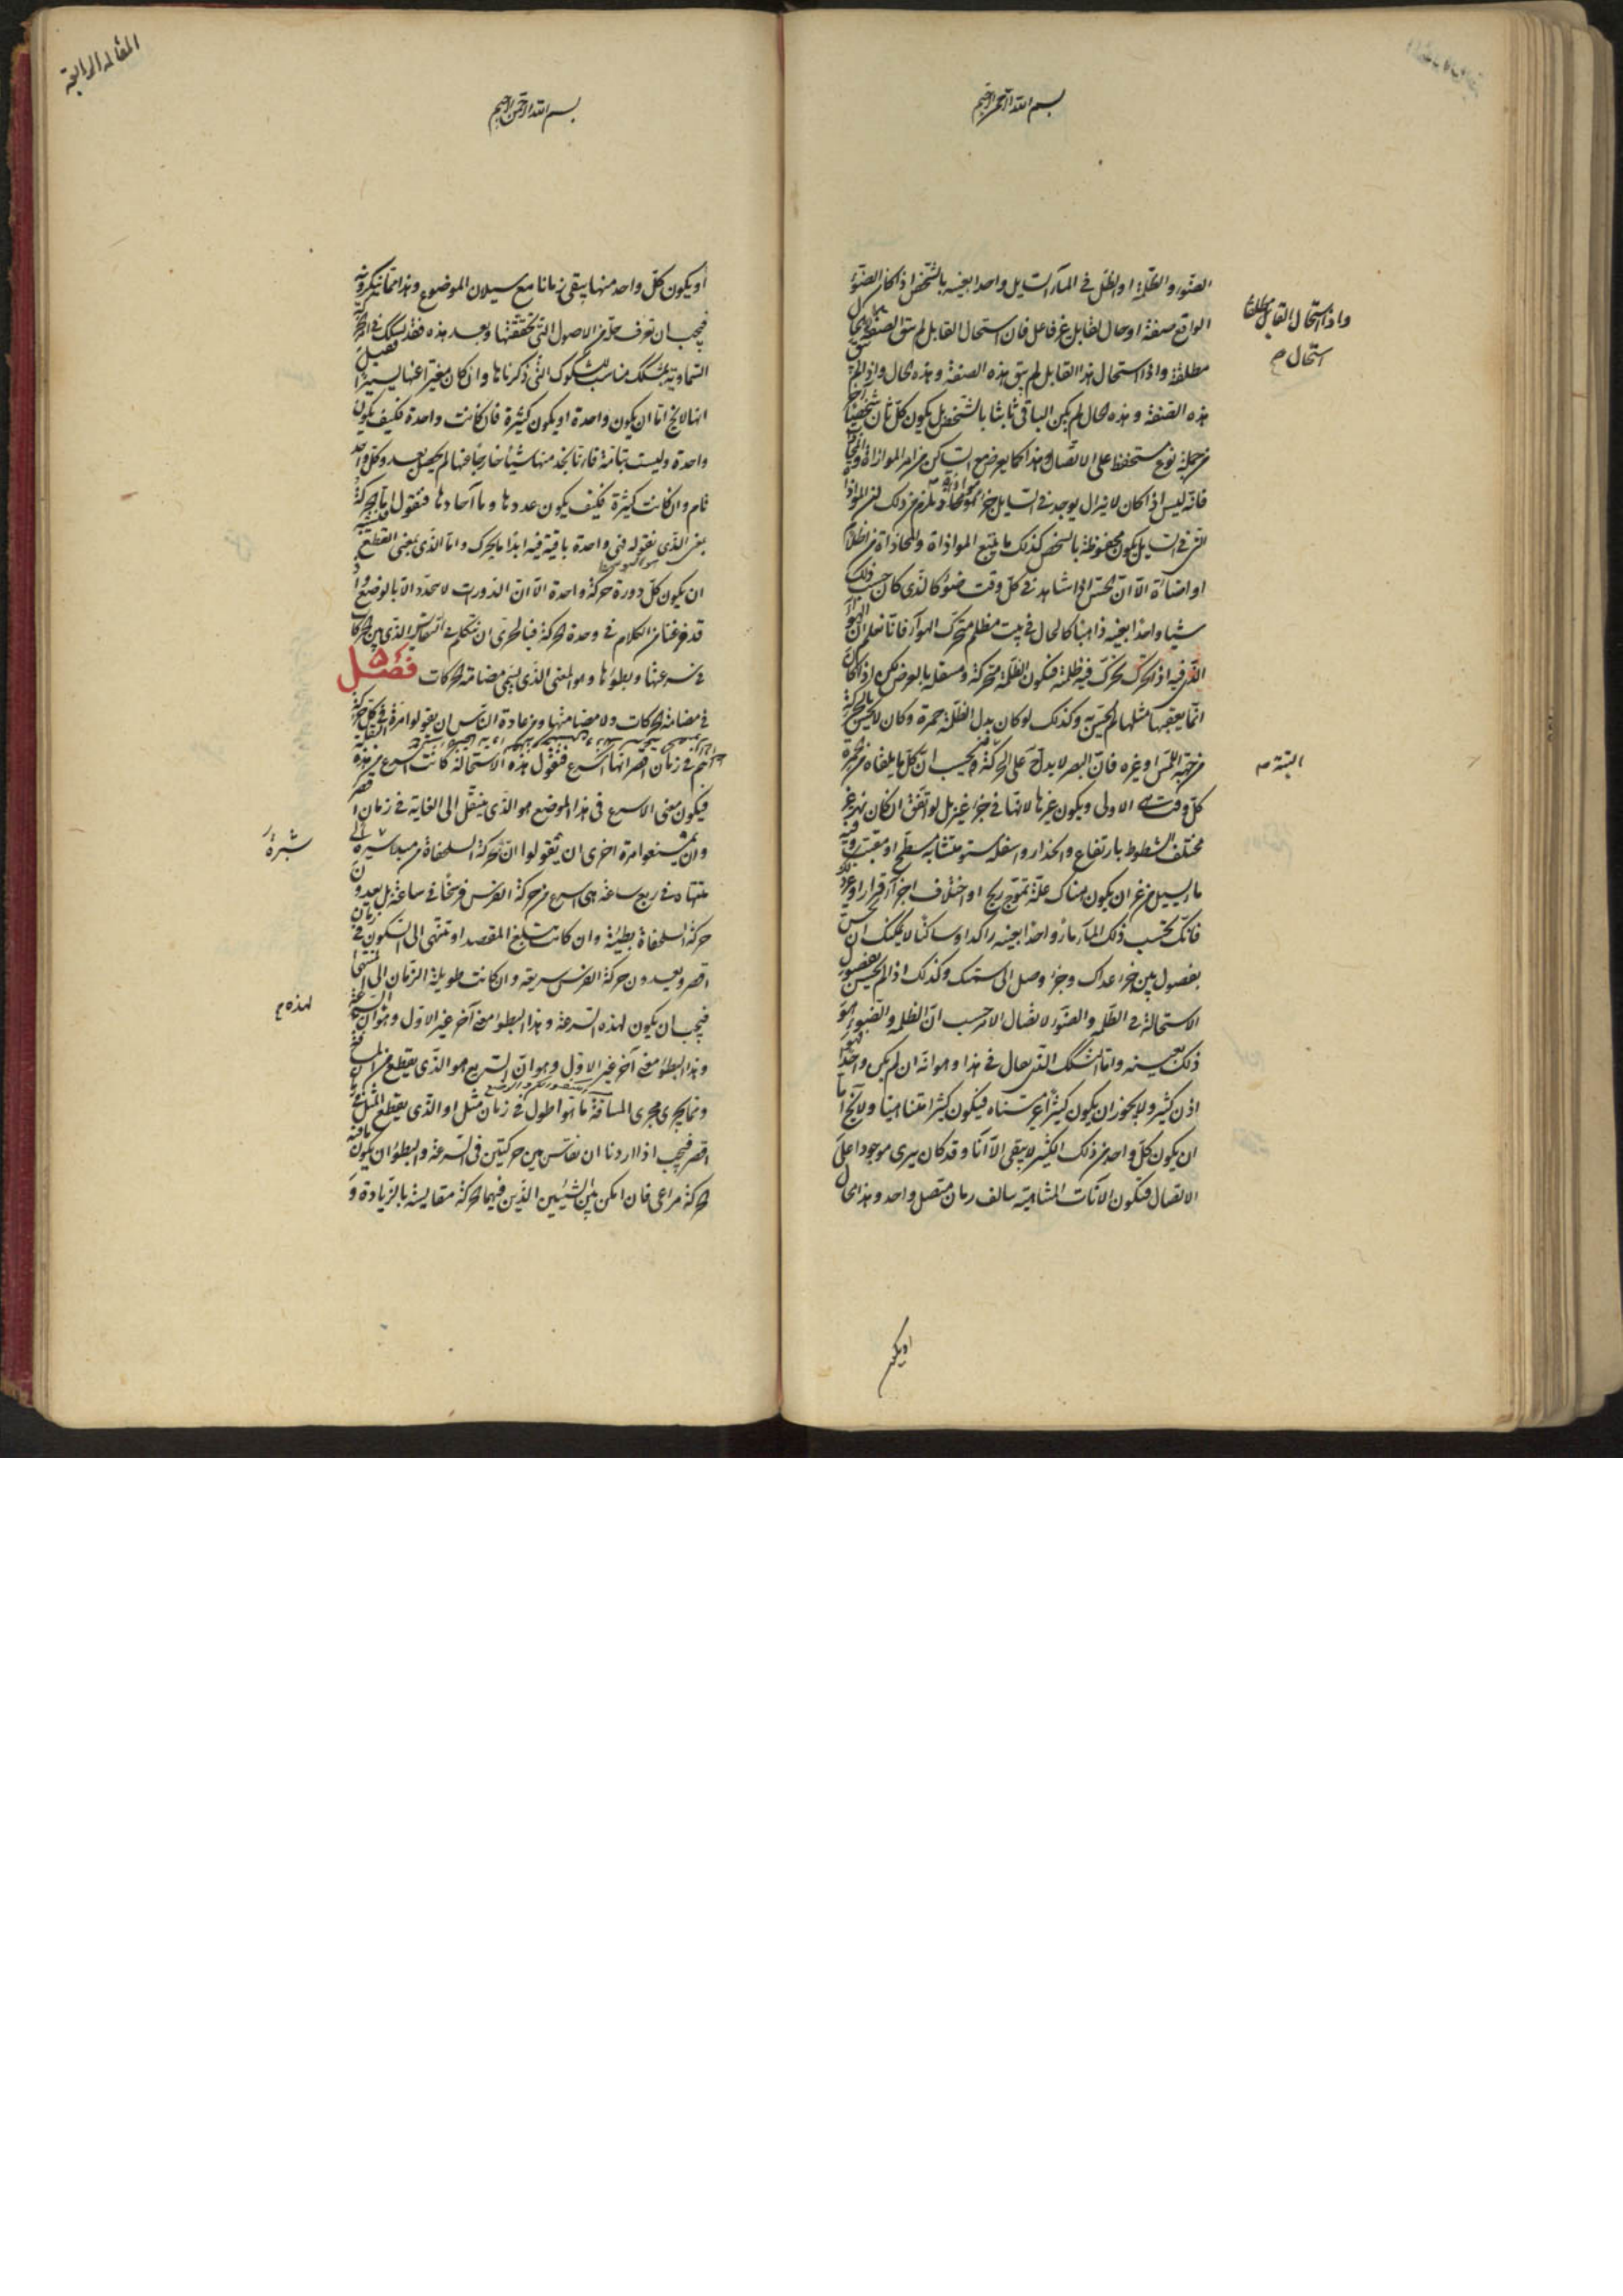 بسم الله الرحمن الرحيم
الضوء والظلمة او الظل في الماء السايل واحدا بعينه بالشخص اذ كان الضوء
الواقع صفة او حال لقابل عن فاعل فان استحال القابل لم تبق الصفة
واذا استحال القابل مطلقا
استحال م
مطلقة واذا استحال هذا القابل لم تبق هذه الصفة وهذه الحال واذا لم تبق
هذه الصفة وهذه الحال لم يكن الباقي ثابتا بالشخص بل يكون كل ثان شخصا
من جملة نوع مستحفظ على الاتصال وهذا كما يعرض مع الساكن من امر الموازاة
فانه ليس اذا كان لا يزال يوجد في السايل جزء يلزم من ذلك ان الموازاة
التي في السايل يكون محفوظة بالشخص كذلك ما يتبع الموازاة والمحاذاة من اظلام
او اضاءة الا ان الحس اذا شاهد في كل وقت ضوءا كالذي كان حسب ذلك
شيا واحدا بعينه ذاهبا كالحال في بيت مظلم متحرك الهواء فانا نعلم ان الهواء
الذي فيه اذا تحرك تحرك فيه ظلمة فتكون الظلمة متحركة ومنتقلة بالعرض لكن اذا كان
انما يعقبها مثلها لم يحس به وكذلك لو كان بدل الظلمة حمرة وكان لا يحس بالحركة
من جهة اللمس او غيره فان البصر لا يدل على الحركة ويجب ان كل ما يلقاه من حمرة
البتة م
كل وقت هي الاولى ويكون غيرها لانها في جزء غيره بل لو اتفق ان كان نهر غير
مختلف الشطوط بارتفاع وانحدار واسفله مستو متشابه مسطح او مقبب وفيه
ماء يسيل من غير ان يكون هناك علة تموج ريح او اختلاف اجزاء قرار او غير ذلك
فانك تحسب ذلك الماء ماء واحدا بعينه راكدا وساكنا لا يمكنك ان تحس
بفصول بين جزء عداك وجزء وصل الى سمتك وكذلك اذا لم تحس بفصول
الاستحالة في الظلمة والضوء لاتصال الامر حسب ان الظلمة والضوء هو
ذلك بعينه واما الشك الذي يقال في هذا وهو انه ان لم يكن واحدا فهو
اذن كثير ولا يجوز ان يكون كثيرا غير متناه فيكون كثيرا متناهيا ولا يخ اما
ان يكون كل واحد من ذلك الكثير لا يبقى الا آنا وقد كان يرى موجودا على
الاتصال فتكون الآنات المتناهية يتالف زمان متصل واحد وهذا محال
او يكون
المقالة الرابعة
بسم الله الرحمن الرحيم
او يكون كل واحد منها يبقى زمانا مع سيلان الموضوع وهذا مما ينكرونه
فيجب ان تعرف حله من الاصول التي تحققتها وبعد هذه فقد يشك في امر الحركة
السماوية بشك مناسب للشكوك التي ذكرناها وان كان مغيرا عنها يسيرا
انها لا يخ اما ان يكون واحدة او يكون كثيرة فان كانت واحدة فكيف يكون
واحدة وليست بتامة فانا نجد منها شيئا خارجا عنها لم يحصل بعد وكل واحد
تام وان كانت كثيرة فكيف يكون عددها وما آحادها فنقول اما الحركة
بمعنى الذي نقوله فهي واحدة باقية فيه ابدا ما يتحرك واما الذي بمعنى القطع
ان يكون كل دورة حركة واحدة الا ان الدورات لا تتحدد الا بالوضع واذ
قد فرغنا من الكلام في وحدة الحركة فبالحري ان نتكلم في المقايسة التي بين الحركات
في سرعتها وبطؤها وهو المعنى الذي يسمى مضامة الحركات فصل ٥
في مضامة الحركات ولا مضامتها ومن عادة الناس ان يقولوا مرة في كل حركة
تتم في زمان اقصر انها اسرع فنقول هذه الاستحالة كانت اسرع من هذه
فيكون معنى الاسرع في هذا الموضع هو الذي ينتقل الى الغاية في زمان اقصر
وان يمتنعوا مرة اخرى ان يقولوا ان حركة السلحفاة من مبدا سيره الى
شبرة
منتهاه في ربع ساعة هي اسرع من حركة الفرس فرسخا في ساعة بل يعدون
حركة السلحفاة بطيئة وان كانت تبلغ المقصد او تنتهي الى السكون في زمان
اقصر ويعدون حركة الفرس سريعة وان كانت طويلة الزمان الى المنتهى
فيجب ان يكون لهذه السرعة وهذا البطؤ معنى آخر غير الاول وهو ان السرعة
لهذه م
وهذا البطؤ معنى آخر غير الاول وهو ان السريع هو الذي يقطع من المسافة
وما يجري مجرى المسافة ما هو اطول في زمان مثل او الذي يقطع المثل في زمان
اقصر فيجب اذا اردنا ان نقايس بين حركتين في السرعة والبطؤ ان يكون ما فيه
الحركة مراعى فان امكن بين الشيئين الذين فيهما الحركة مقايسة بالزيادة و